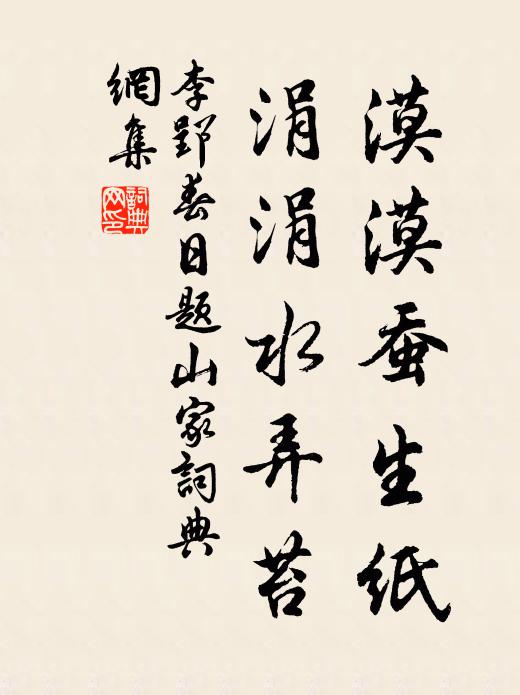 漠漠蚕生纸
涓涓水弄苔
李郢春日題山家詞典
網集
詞典網印